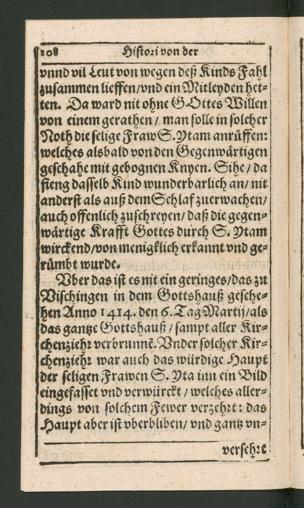 108 Histori von der
vnnd vil Leut von wegen deß Kinds Fahl
zusammen lieffen/vnd ein Mitleyden het-
ten. Da ward nit ohne GOttes Willen
von einem gerathen/ man solle in solcher
Noth die selige Fraw S. Ytam anrüffen:
welches alsbald von den Gegenwärtigen
geschahe mit gebognen Knyen. Sihe/ da
fieng dasselb Kind wunderbarlich an/ nit
anderst als auß dem Schlaf zuerwachen/
auch offenlich zuschreyen/ daß die gegen-
wärtige Krafft Gottes durch S. Ytam
wirckend/von menigklich erkannt vnd ge-
rümbt wurde.
Vber das ist es nit ein geringes/das zu
Vischingen in dem Gottshauß gesche-
hen Anno 1414. den 6. Tag Martij/als
das gantze Gottshauß/ sampt aller Kir-
chenziehr verbrunnē. Vnder solcher Kir-
chenziehr war auch das würdige Haupt
der seligen Frawen S. Yta inn ein Bild
eingefasset vnd verwürckt/ welches aller-
dings von solchem Fewer verzehrt: das
Haupt aber ist vberbliben/ vnd gantz vn-
versehrt